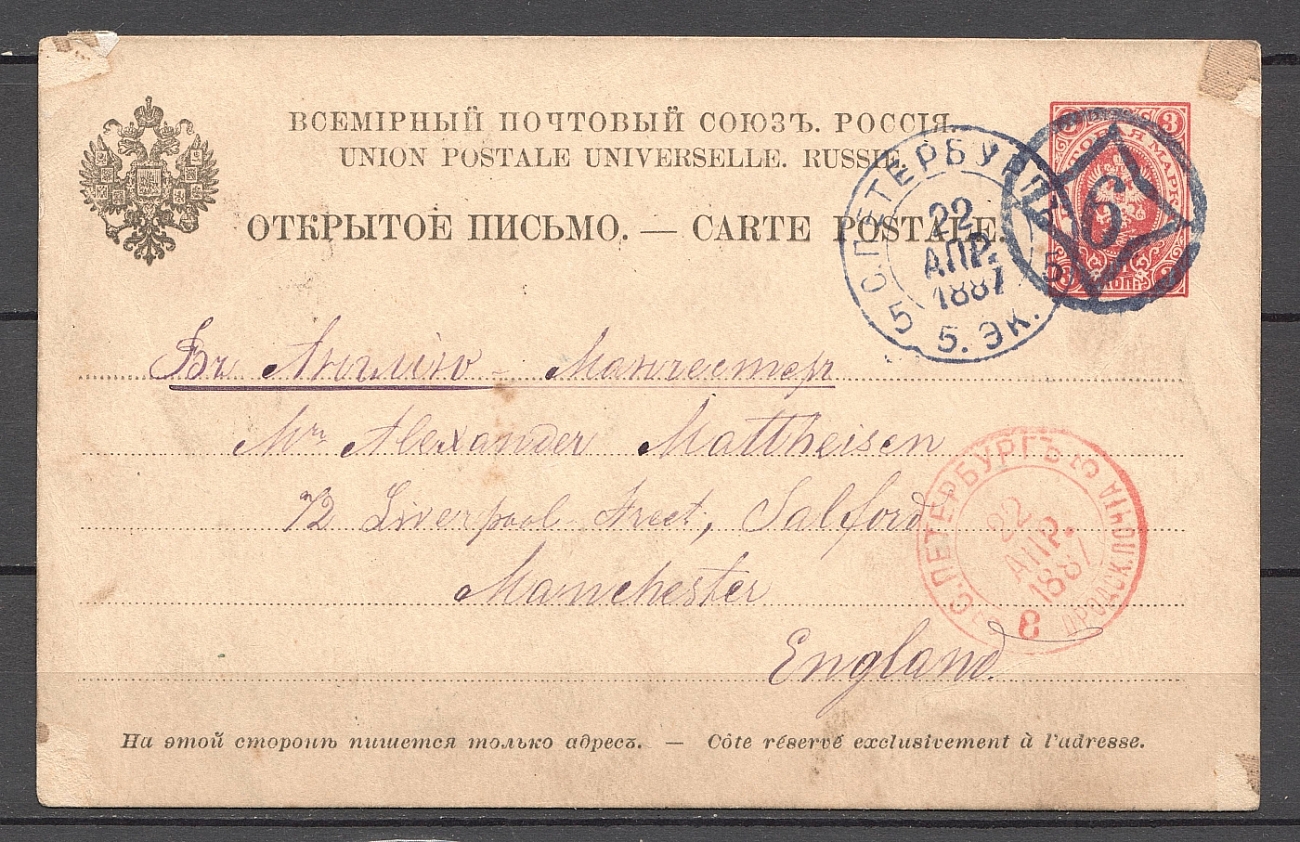 ВСЕМІРНЫЙ ПОЧТОВЫЙ СОЮЗЪ. РОССІЯ.
UNION POSTALE UNIVERSELLE. RUSSIE.
ОТКРЫТОЕ ПИСЬМО. — CARTE POSTALE.
3 3
ПОЧТОВАЯ МАРКА
3 КОП. 3
6
С.ПЕТЕРБУРГЪ
22
АПР.
1887
5 5. ЭК. 5
Въ Англію - Манчестеръ
Mr Alexander Mattheisen
72 Liverpool Street, Salford
Manchester
England.
С.ПЕТЕРБУРГЪ
22
АПР.
1887
8
На этой сторонѣ пишется только адресъ. — Côte réservé exclusivement à l'adresse.